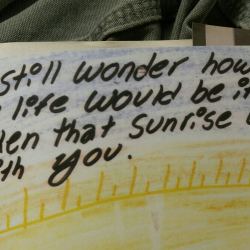 still wonder how
life would be if
that sunrise
you.